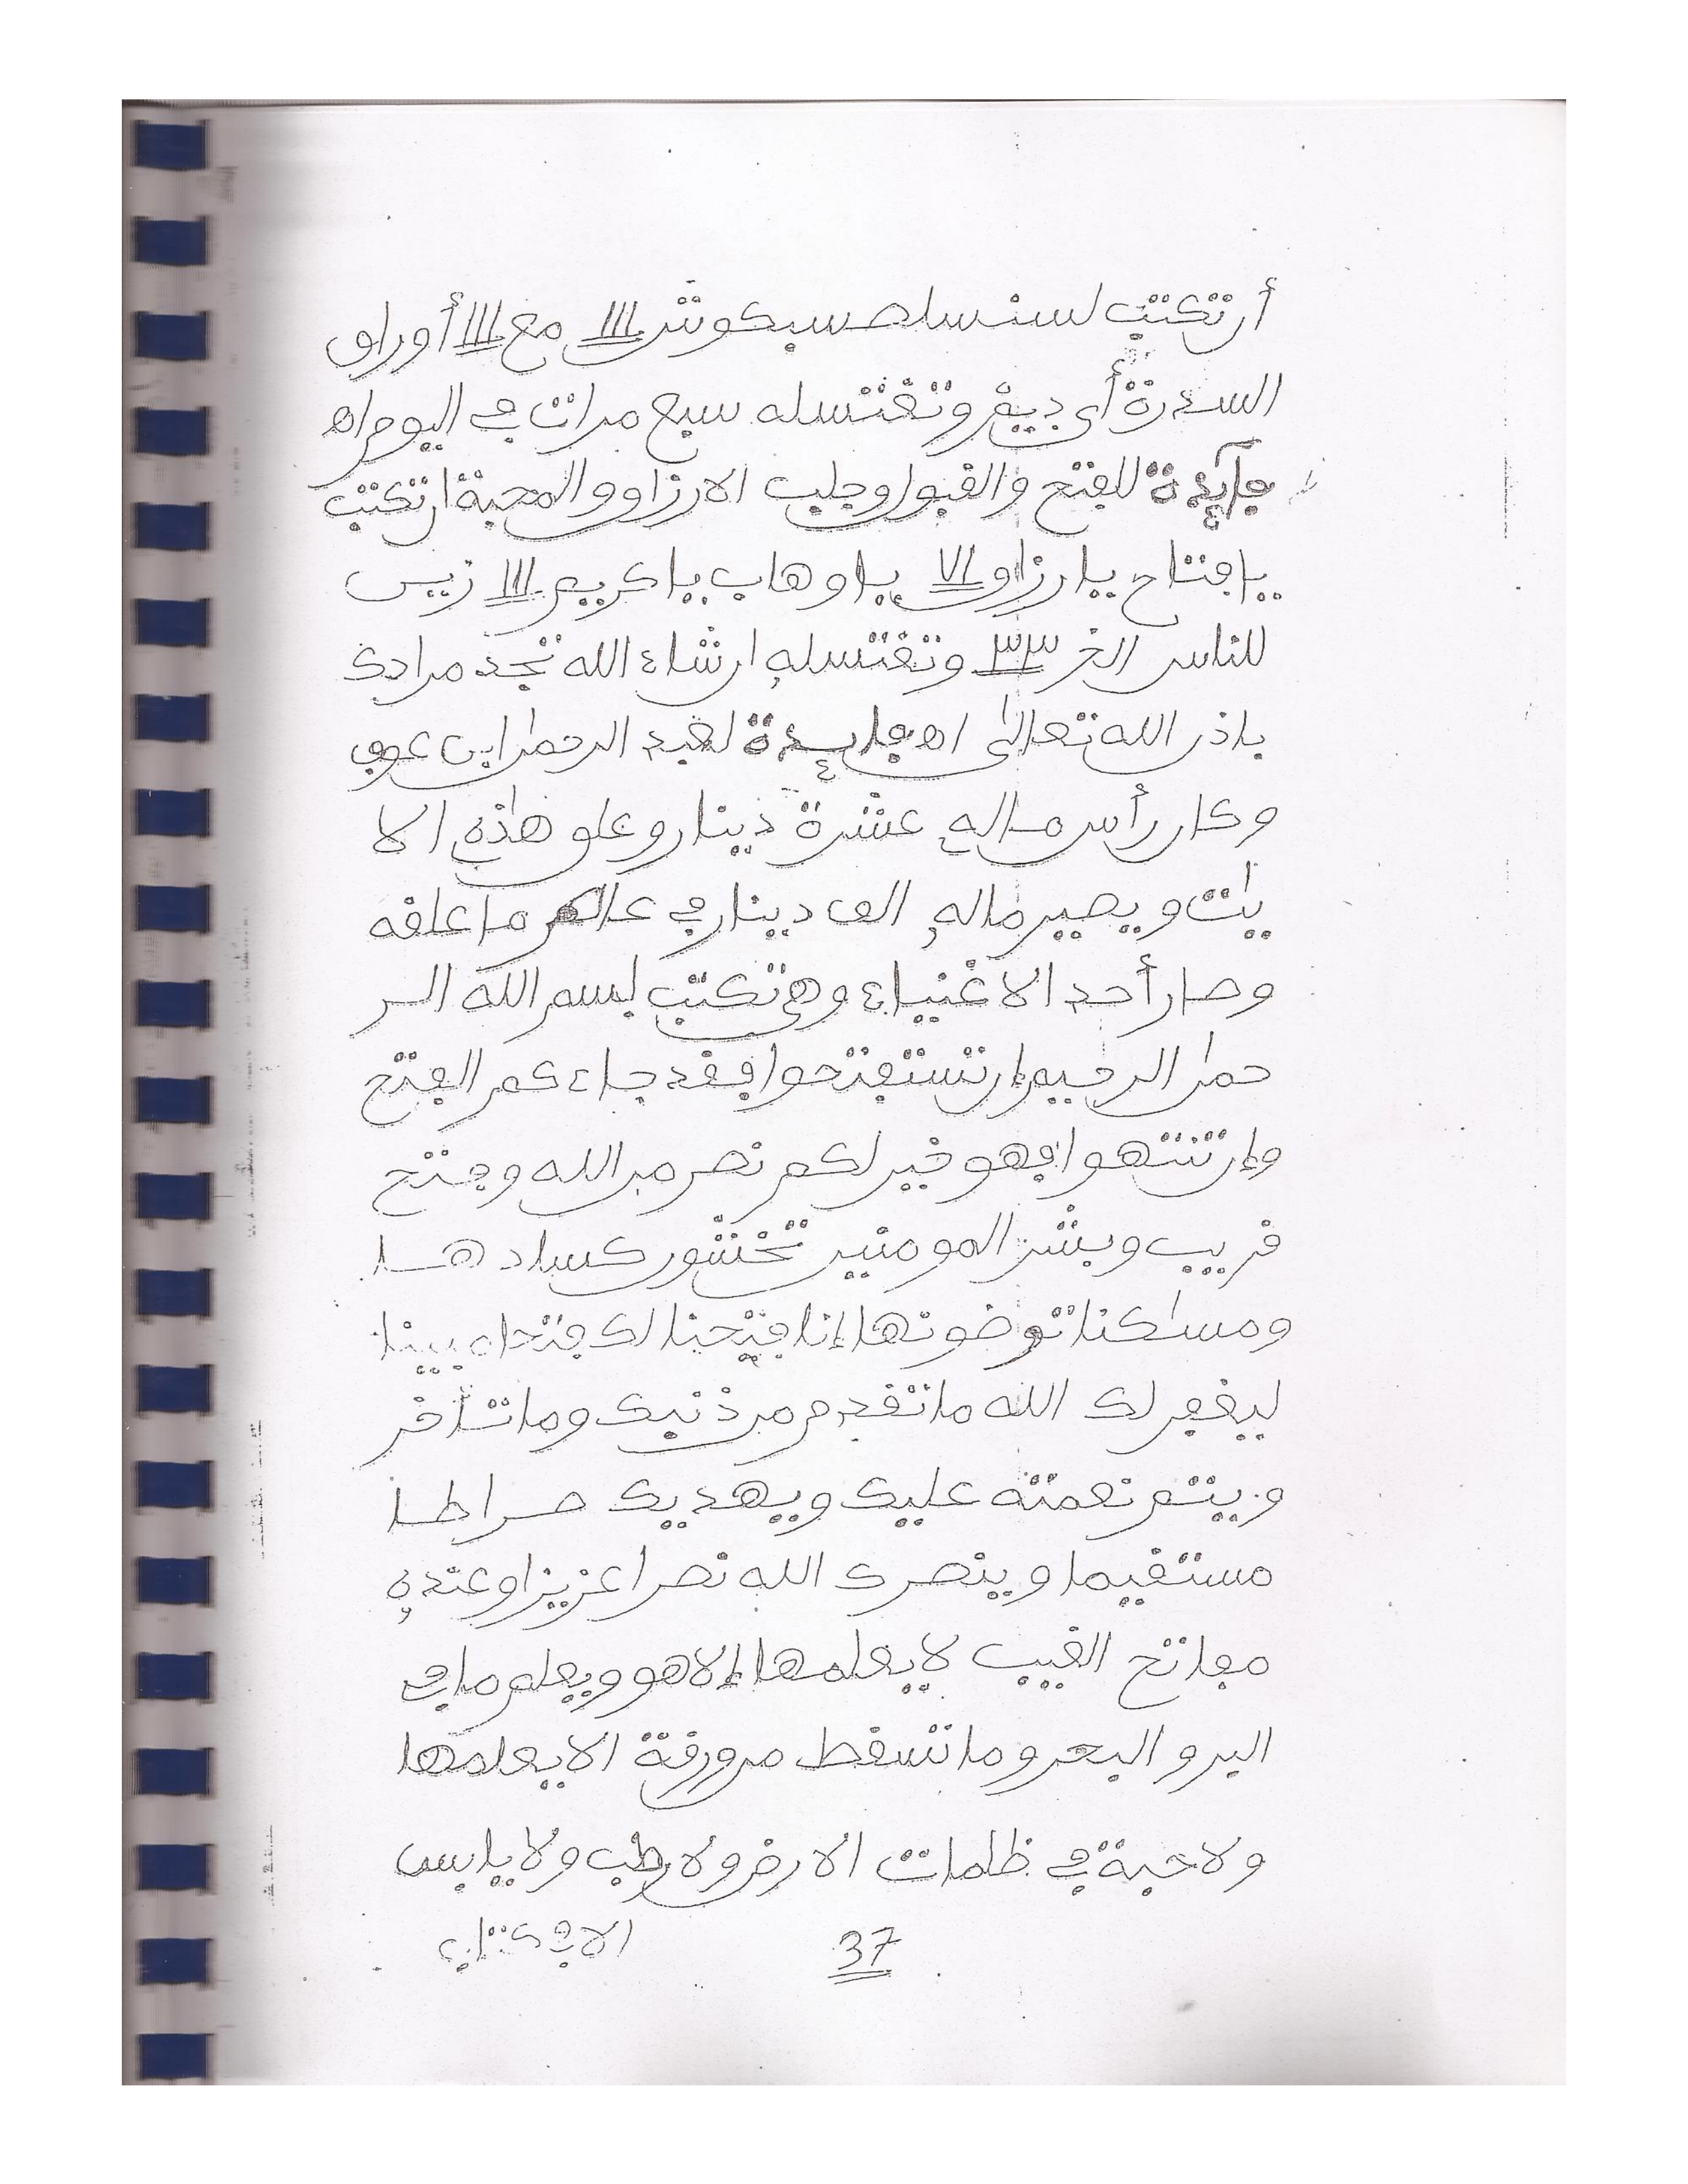 أن تكتب لسنسلصسبكوش ااا مع ااا أوراق
السدرة أي ديغر وتغتسله سبع مرات في اليوم اه
فايدة للفتح والقبول وجلب الارزاق والمحبة ان تكتب
يا فتاح يا رزاق يا وهاب يا كريم ااا زين
للناس الخ ٣٣ وتغتسله ان شاء الله تجد مرادك
باذن الله تعالى اه فايدة لعبد الرحمن ابن عوف
وكان رأس ماله عشرة دينار وعلق هذه الا
يات ويصير ماله الف دينار في عام ما علقه
وصار أحد الاغنياء وهي تكتب بسم الله الر
حمن الرحيم إن تستفتحوا فقد جاءكم الفتح
وإن تنتهوا فهو خير لكم نصر من الله وفتح
قريب وبشر المومنين تخشون كسادها
ومساكنا توضونها إنا فتحنا لك فتحا مبينا
ليغفر لك الله ما تقدم من ذنبك وما تأخر
ويتم نعمته عليك ويهديك صراطا
مستقيما وينصرك الله نصرا عزيزا وعنده
مفاتح الغيب لا يعلمها إلا هو ويعلم ما في
البر والبحر وما تسقط من ورقة الا يعلمها
ولا حبة في ظلمات الارض ولا رطب ولا يابس
الا في كتاب
37